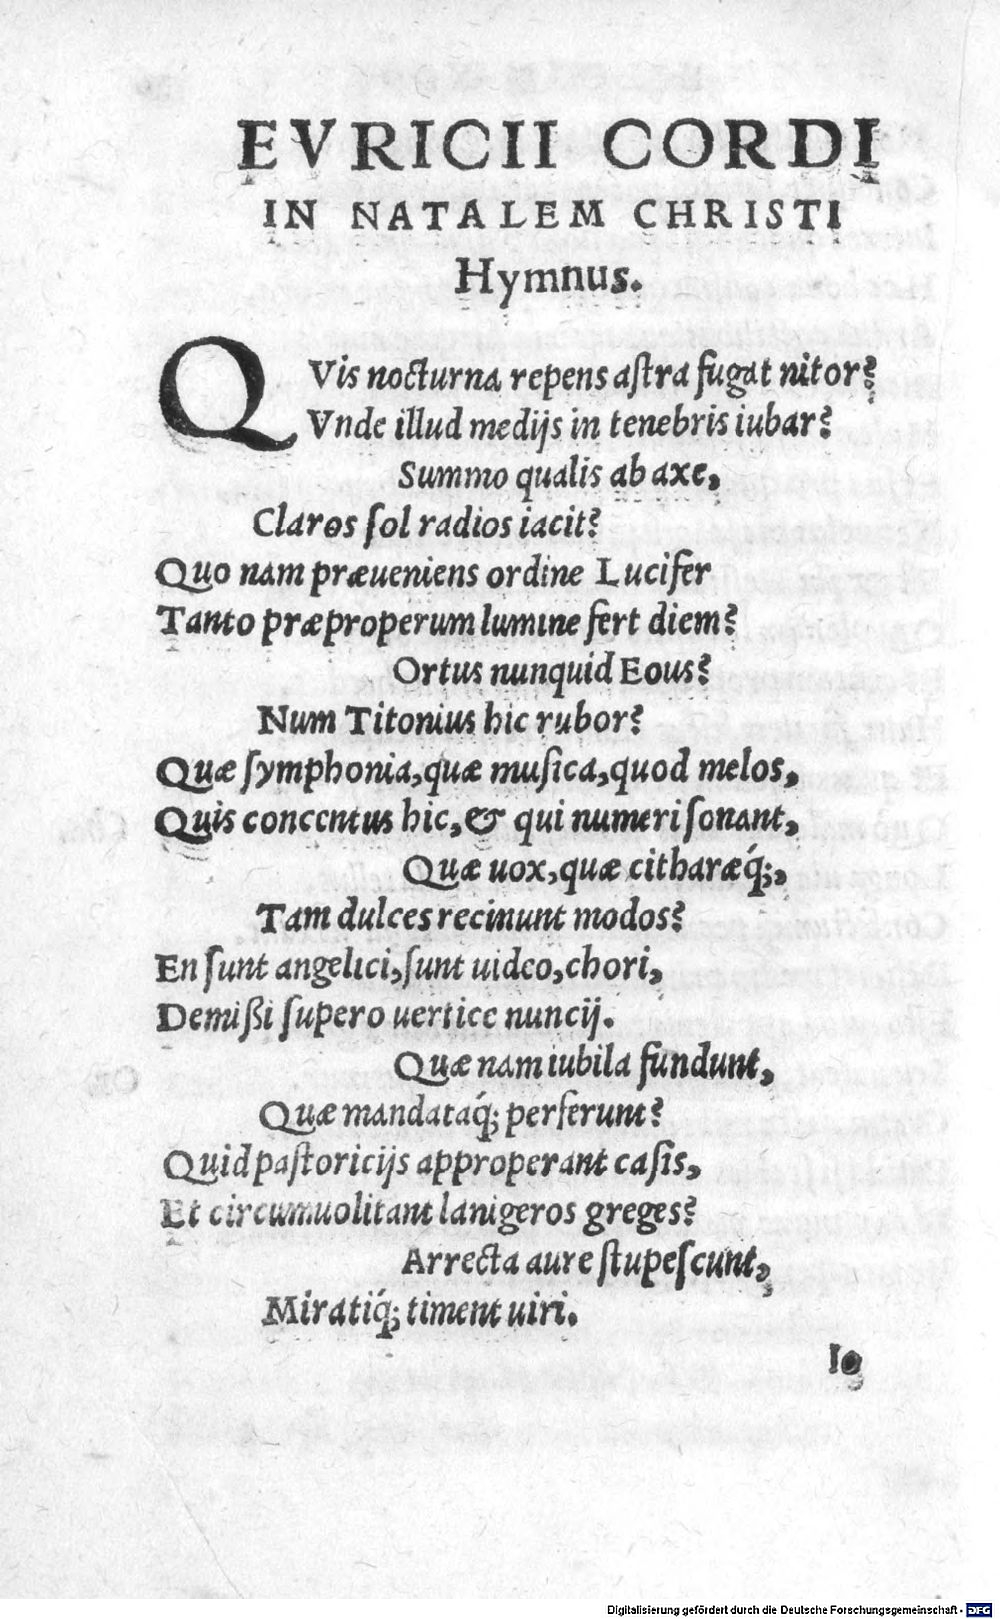 EVRICII CORDI
IN NATALEM CHRISTI
Hymnus.
QVis nocturna repens aſtra fugat nitor?
Vnde illud medijs in tenebris iubar?
Summo qualis ab axe,
Claros ſol radios iacit?
Quo nam præueniens ordine Lucifer
Tanto præproperum lumine fert diem?
Ortus nunquid Eous?
Num Titonius hic rubor?
Quæ ſymphonia, quæ muſica, quod melos,
Quis concentus hic, & qui numeri ſonant,
Quæ uox, quæ citharæq́;,
Tam dulces recinunt modos?
En ſunt angelici, ſunt uideo, chori,
Demißi ſupero uertice nuncij.
Quæ nam iubila fundunt,
Quæ mandataq́; perferunt?
Quid paſtoricijs approperant caſis,
Et circumuolitant lanigeros greges?
Arrecta aure ſtupeſcunt,
Miratiq́; timent uiri.
Io
Digitalisierung gefördert durch die Deutsche Forschungsgemeinschaft - DFG